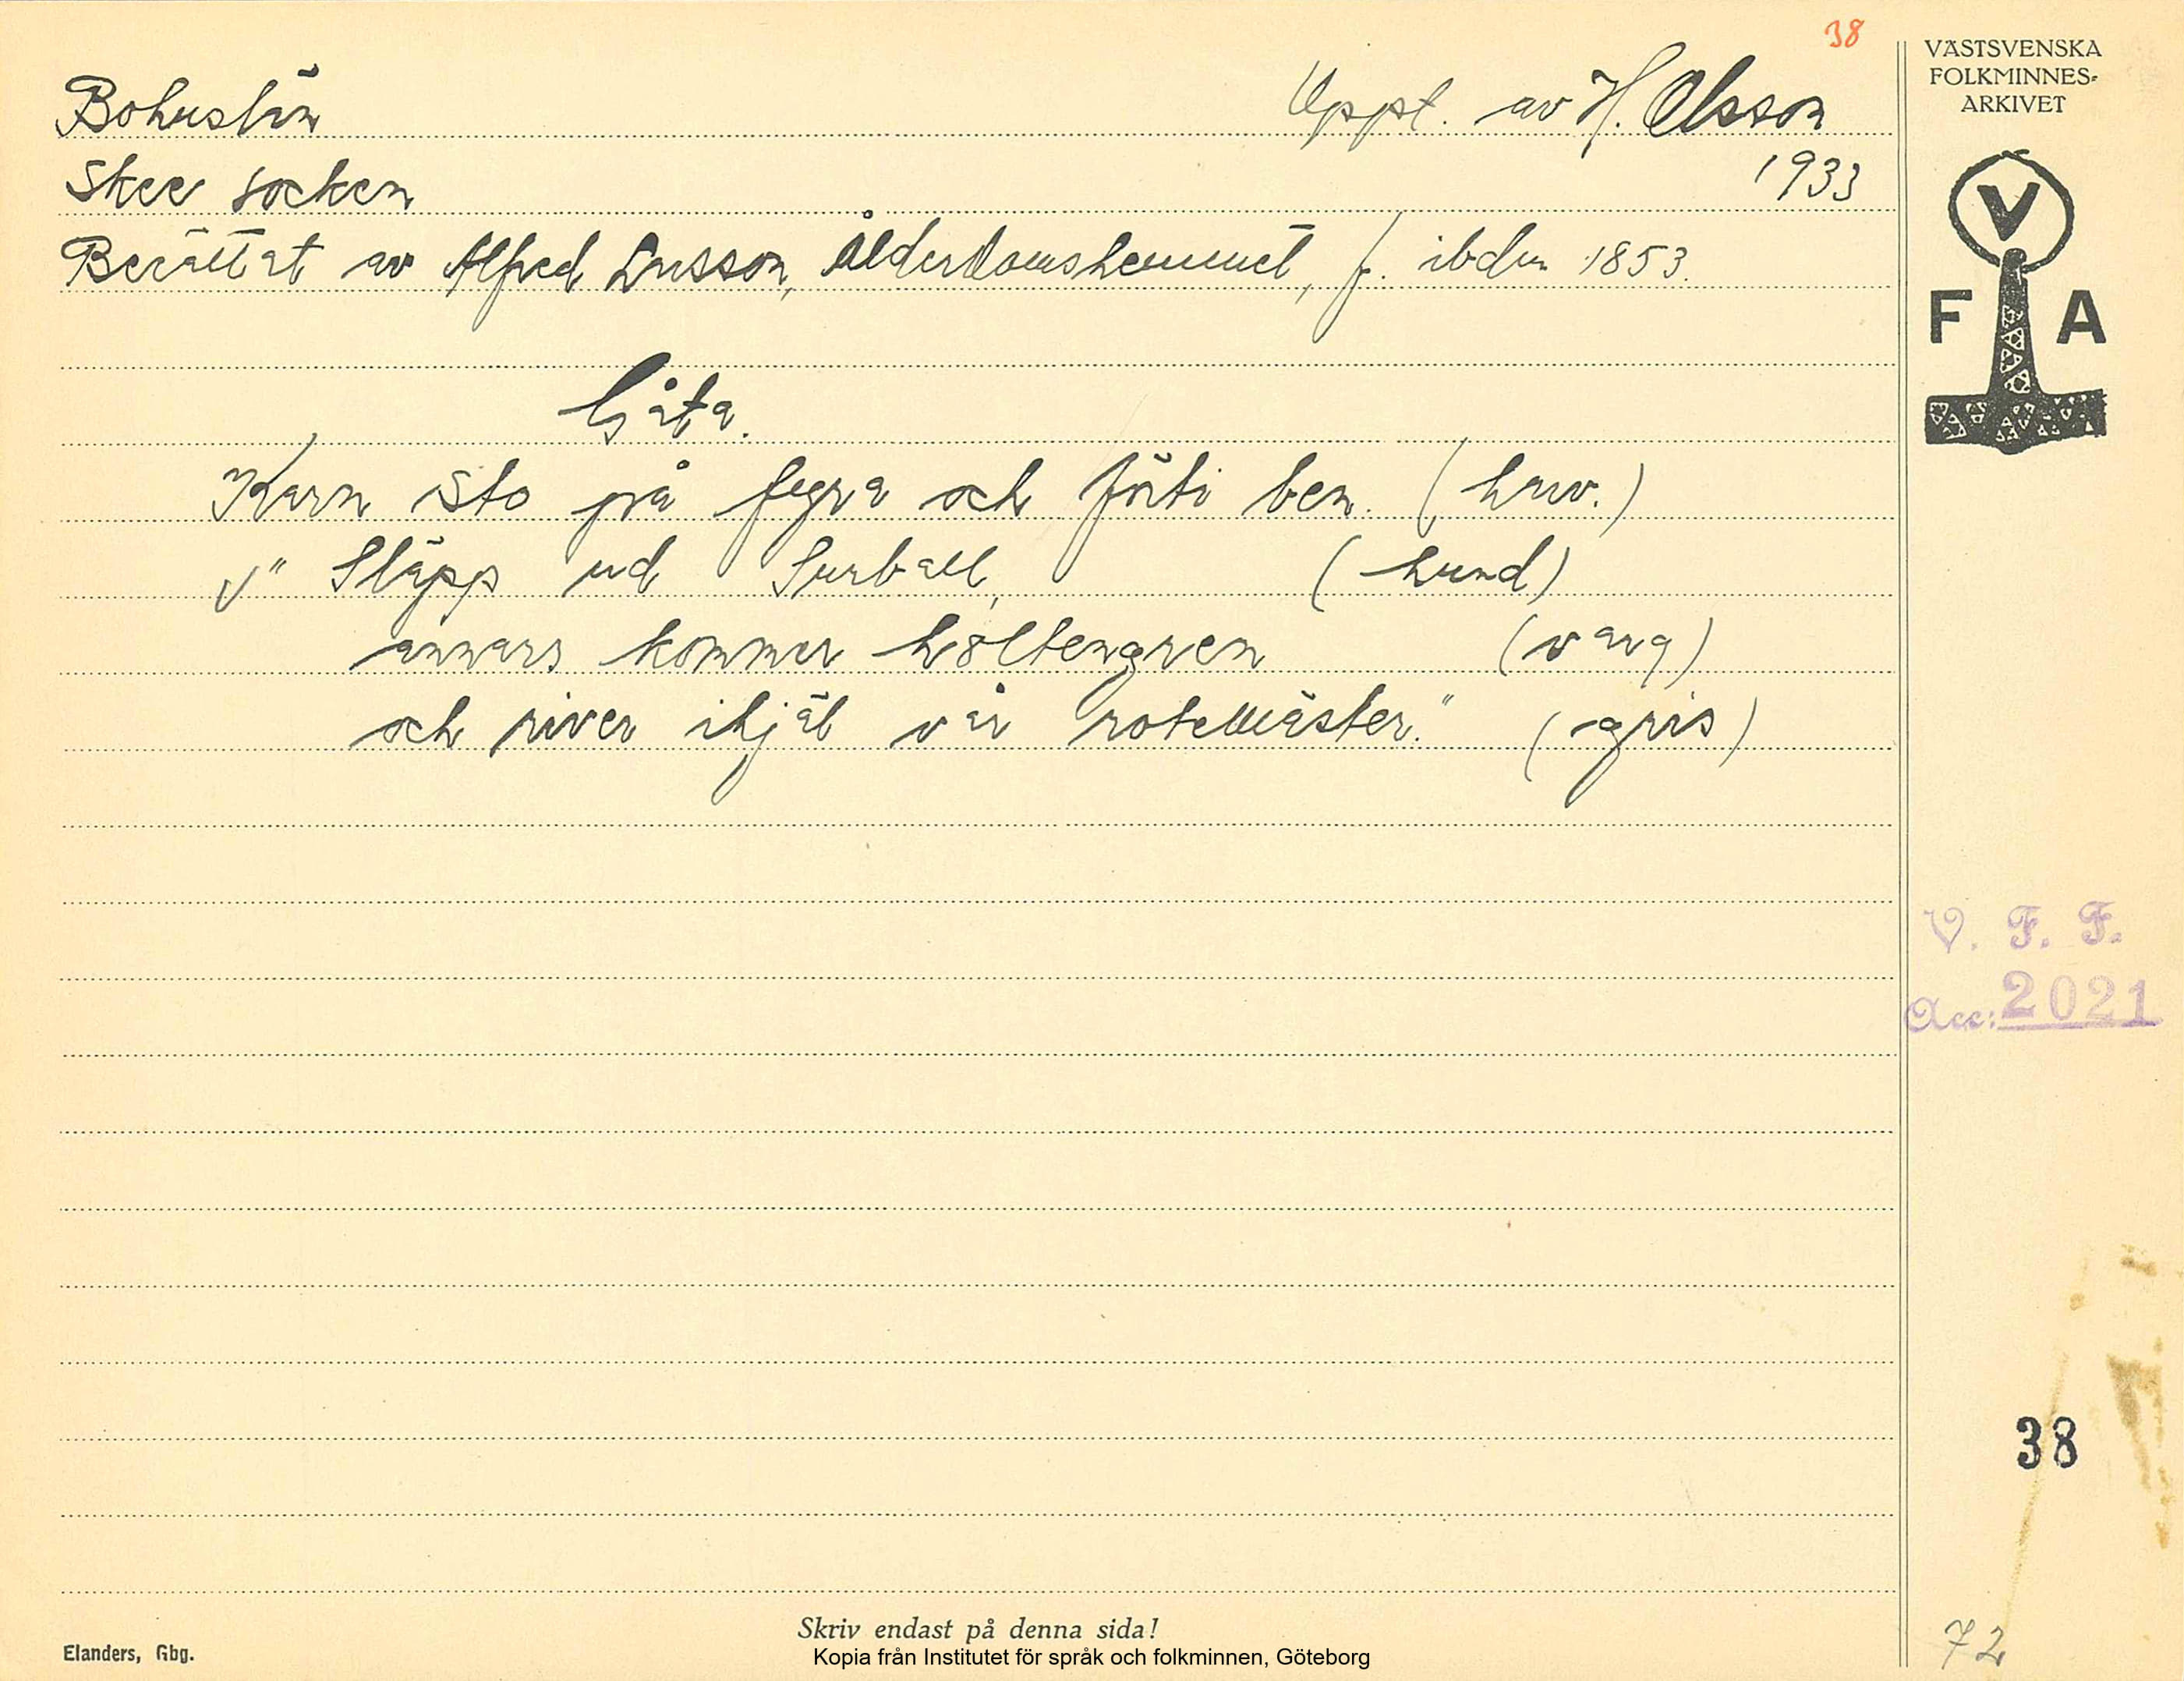 38
Bohuslän
Uppt. av H. Olsson
Skee socken
1933
Berättat av Alfred Lusson, Ålderdomshemmet, f. ibdm 1853.
Gåta.
Karn sto på fyra och förti ben. (harv.)
V" Släpp ud Surball, (hund)
annars kommer holtengren (varg)
och river ihjäl vår rotemäster." (gris)
VÄSTSVENSKA
FOLKMINNES-
ARKIVET
V
F A
V. F. F.
Acc: 2021
38
72
Skriv endast på denna sida!
Elanders, Gbg.
Kopia från Institutet för språk och folkminnen, Göteborg